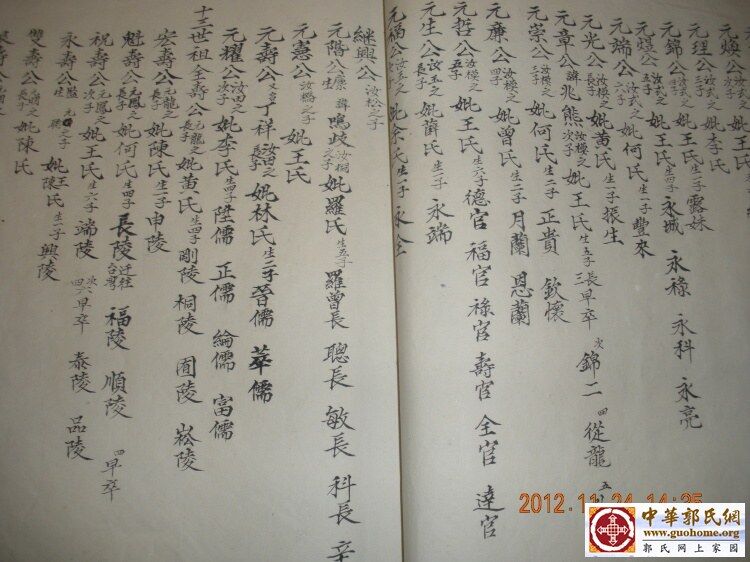 元煥公汝式之次子 妣
元珵公汝式之三子 妣李氏
元錦公汝式之四子 妣王氏生二子 露妹
元煌公汝式之五子 妣王氏生四子 永城 永祿 永科 永亮
元瑞公汝式之六子 妣何氏生一子 豐來
元光公汝模之長子 妣黃氏生一子 振生
元章公諱兆熊汝模之次子 妣王氏生五子 長早卒 次錦二 四從龍 五
元崇公汝模之三子 妣何氏生二子 正貴 欽懷
元廉公汝模之四子 妣曾氏生二子 月蘭 恩蘭
元哲公汝模之五子 妣王氏生六子 德官 福官 祿官 壽官 全官 達官
元生公汝玉之長子 妣薛氏生一子 永端
元福公汝玉之次子 妣余氏生一子 永全
継興公汝松之子
元階公廩生諱鳴歧汝桐之子 妣羅氏生五子 羅曾長 聰長 敏長 科長 辛
元憲公汝橋之子 妣王氏
元壽公又名丁祥汝田之長子 妣林氏生二子 晉儒 華儒
元耀公汝田之次子 妣李氏生四子 陞儒 正儒 綸儒 富儒
十三世祖全壽公元龍之長子 妣黃氏生四子 剛陵 桐陵 囿陵 崧陵
宏壽公元龍之次子 妣陳氏生一子 申陵
魁壽公元鳳之長子 妣何氏生四子 長陵迁往台灣 福陵 順陵 四早卒
祝壽公元鳳之次子 妣王氏生六子 端陵 次四六早卒 泰陵 品陵
永壽公監生元之子 妣王氏陳氏生一子 興陵
雙壽公元之長子 妣陳氏
壽公
2012.11.24 14:25
中華郭氏網
www.guohome.org
郭氏网上家园